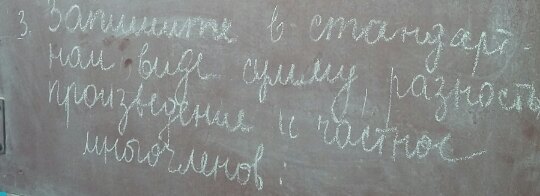 3. Запишите в стандарт-
ном виде сумму, разность,
произведение и частное
многочленов: